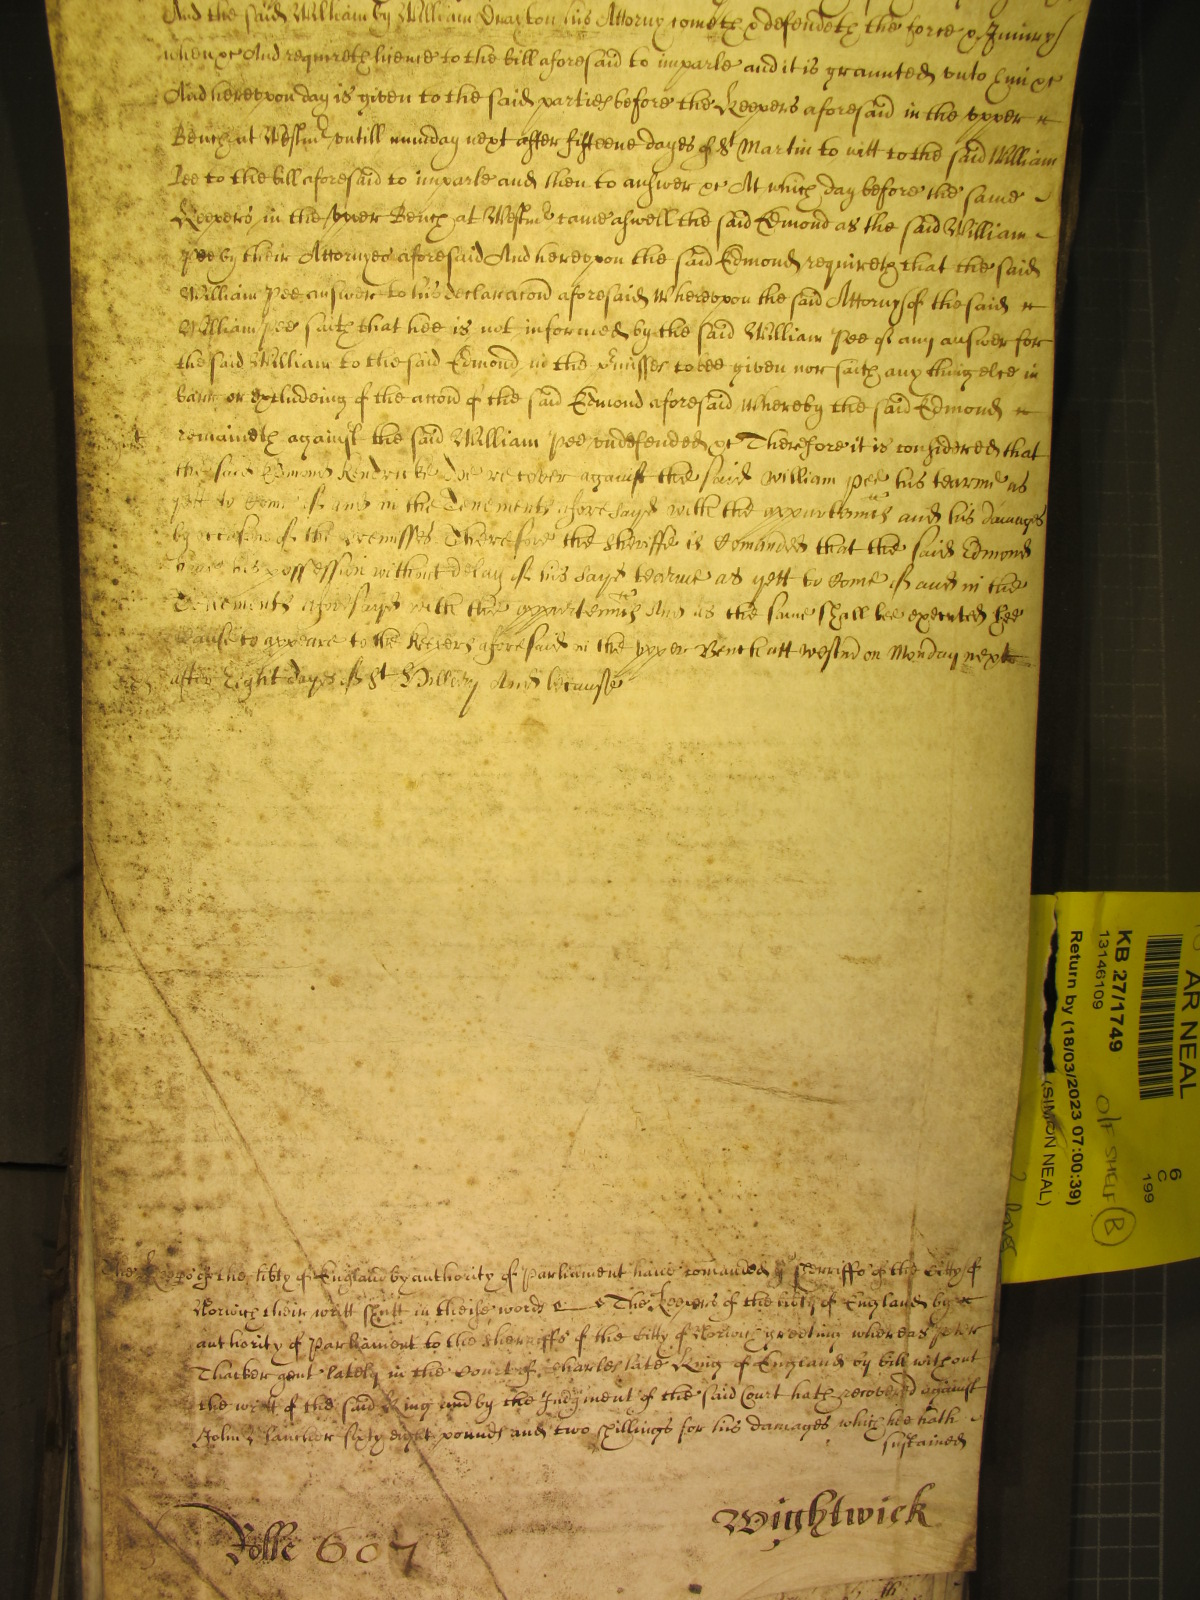 And the said William by William Drayton his Attorny cometh & defendeth the force & Iniury
when &c And requireth licence to the bill aforesaid to imparle and it is graunted vnto him &c
And herevpon day is given to the said parties before the Keepers aforesaid in the vpper
Bench at Westmr vntill munday next after fifteene dayes of St Martin to witt to the said William
Pee to the bill aforesaid to imparle and then to answer &c At which day before the same
Keepers in the vpper Bench at Westmr came aswell the said Edmond as the said William
Pee by their Attornyes aforesaid And herevpon the said Edmond requireth that the said
William Pee answer to his declaracon aforesaid Wherevpon the said Attorny of the said
William Pee saith that hee is not informed by the said William Pee of any answer for
the said William to the said Edmond in the pmisses to bee given nor saith any thing else in
barr or excludeing of the accon of the said Edmond aforesaid whereby the said Edmond
remaineth against the said William Pee vndefended &c Therefore it is considered that
the said Edmond Kendricke doe recover against the said William Pee his tearme as
yett to come of and in the Tenements aforesayd with the appurtenncs and his damages
by occasion of the premisses Therefore the sheriffe is Comanded that the said Edmond
have his possession without delay of his sayd tearme as yett to come of and in the
Tenements aforesayd with the appurtenncs And as the same shall bee executed hee
cause to appeare to the Keepers aforesaid in the vpper Bench att Westmr on Monday next
after Eight dayes of St Hillary And because
The Keeps of the libty of England by authority of Parliament have comanded ye Sherriffs of the Citty of
Norwich their writt shutt in theise words The Keepers of the libty of England by
authority of Parliament to the Sherriffs of the Citty of Norwich greeting whereas Peter
Thacker gent lately in the Court of Charles late King of England by bill without
the writt of the said King and by the Iudgment of the said Court hath recovered against
Iohn sixty eight pounds and two shillings for his damages which hee hath
sustained
Wightwick
Rolle 607
AR NEAL
KB 27/1749
13146109
Return by (18/03/2023 07:00:39)
(SIMON NEAL)
6
C
199
O/F SHELF B